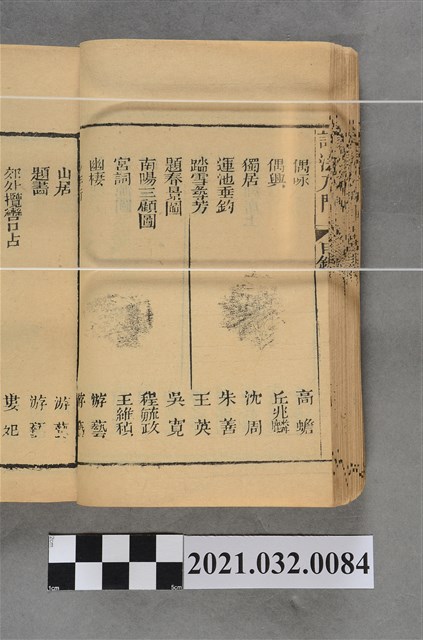 詩法入門 目錄
偶詠 高蟾
偶興 丘兆麟
獨居 沈周
蓮池垂釣 朱善
踏雪尋芳 王英
題春景圖 吳寬
南陽三顧圖 程敏政
宮詞 王維楨
幽棲 游藝
山居 游藝
題畫 游藝
郊外攬轡口占 婁妃
2021.032.0084